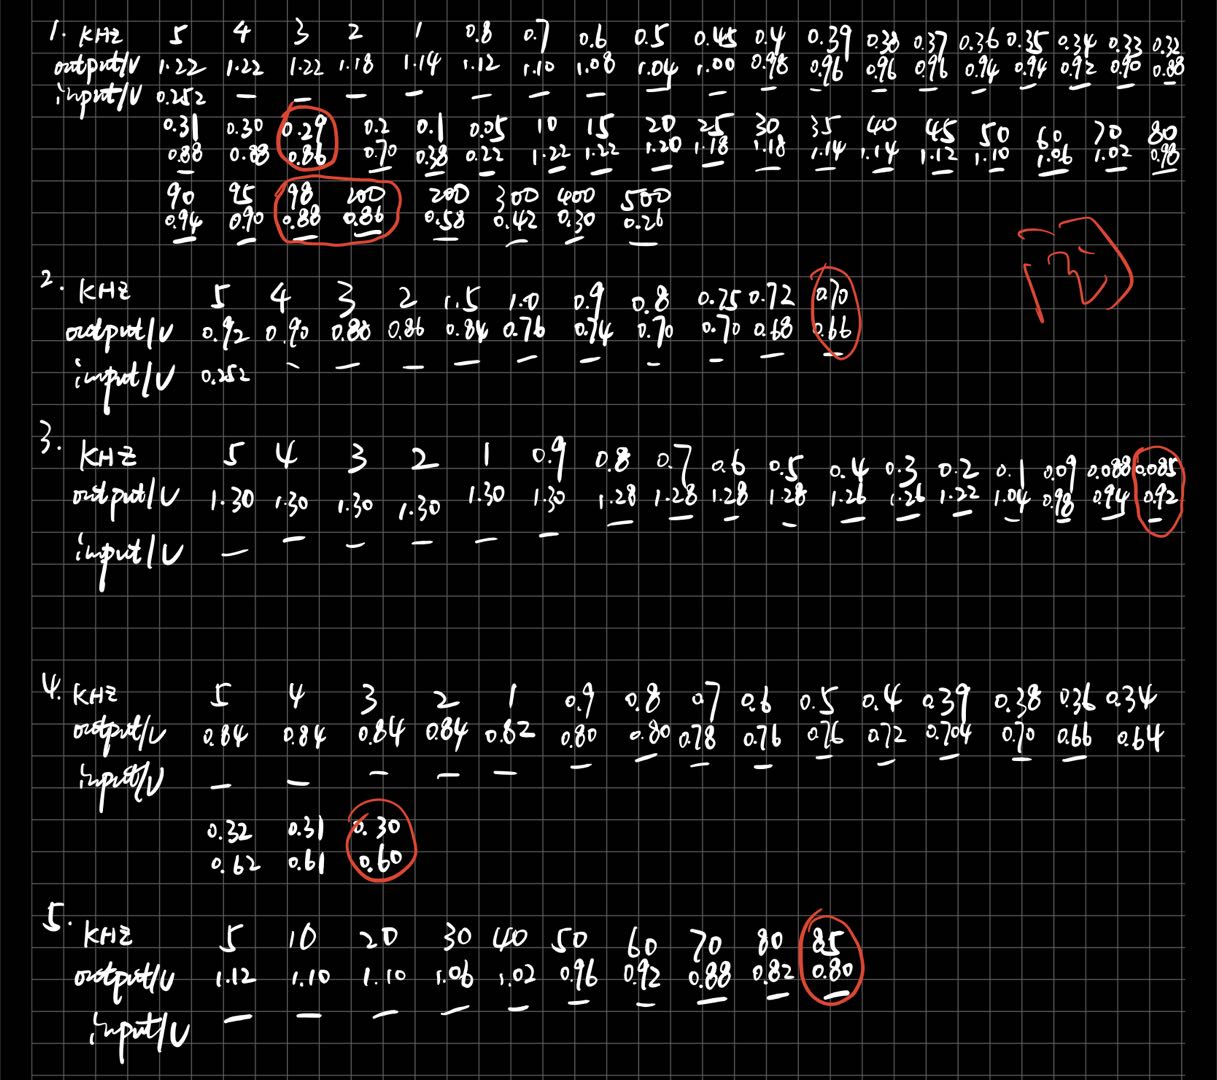 1. KHZ 5 4 3 2 1 0.8 0.7 0.6 0.5 0.45 0.4 0.39 0.38 0.37 0.36 0.35 0.34 0.33 0.32
output/V 1.22 1.22 1.22 1.18 1.14 1.12 1.10 1.08 1.04 1.00 0.98 0.96 0.96 0.96 0.94 0.94 0.92 0.90 0.88
input/V 0.252 — — — — — — — — — — — — — — — — — —
0.31 0.30 0.29 0.2 0.1 0.05 10 15 20 25 30 35 40 45 50 60 70 80
0.88 0.88 0.86 0.70 0.38 0.22 1.22 1.22 1.20 1.18 1.18 1.14 1.14 1.12 1.10 1.06 1.02 0.98
90 95 98 200 200 300 400 500
0.94 0.90 0.88 0.86 0.58 0.42 0.30 0.26
2. KHZ 5 4 3 2 1.5 1.0 0.9 0.8 0.75 0.72 0.70
output/V 0.92 0.90 0.88 0.86 0.84 0.76 0.74 0.70 0.70 0.68 0.66
input/V 0.252 — — — — — — — — — —
3. KHZ 5 4 3 2 1 0.9 0.8 0.7 0.6 0.5 0.4 0.3 0.2 0.1 0.09 0.088 0.085
output/V 1.30 1.30 1.30 1.30 1.30 1.30 1.28 1.28 1.28 1.28 1.26 1.26 1.22 1.04 0.98 0.94 0.92
input/V — — — — — — — — — — — — — — — — —
4. KHZ 5 4 3 2 1 0.9 0.8 0.7 0.6 0.5 0.4 0.39 0.38 0.36 0.34
output/V 0.84 0.84 0.84 0.84 0.82 0.80 0.80 0.78 0.76 0.76 0.72 0.704 0.70 0.66 0.64
input/V — — — — — — — — — — — — — —
0.32 0.31 0.30
0.62 0.61 0.60
5. KHZ 5 10 20 30 40 50 60 70 80 85
output/V 1.12 1.10 1.10 1.06 1.02 0.96 0.92 0.88 0.82 0.80
input/V — — — — — — — — — —